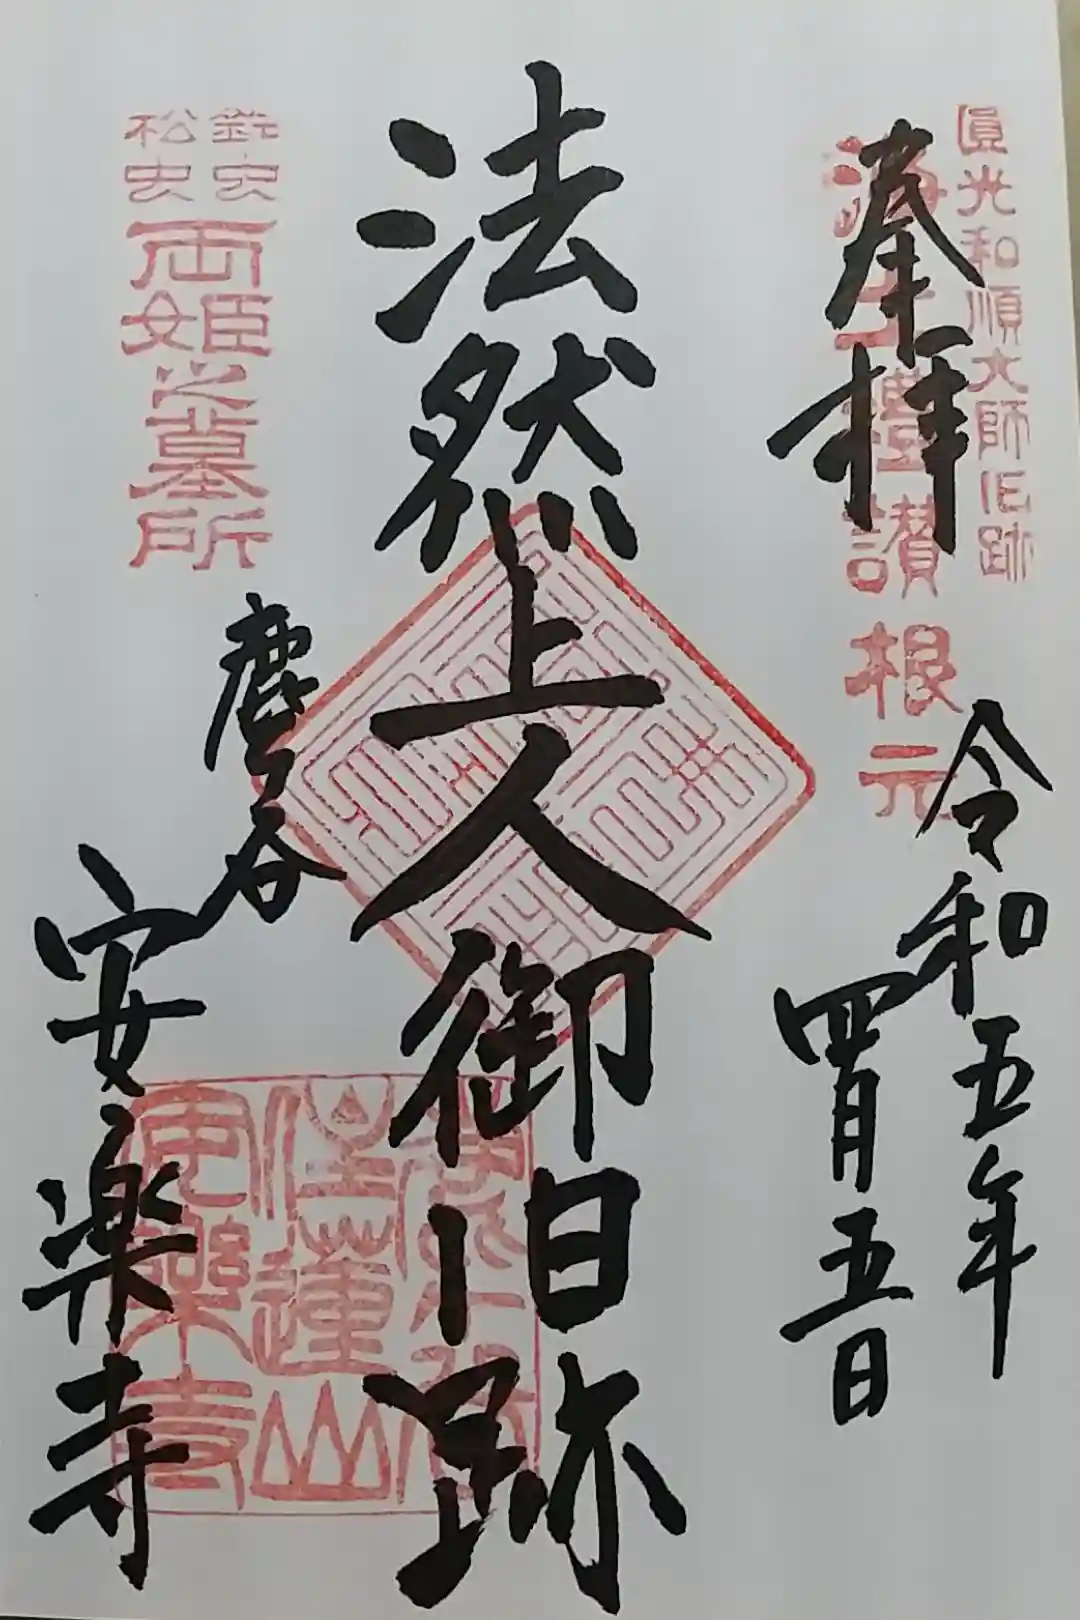 圓光和順大師旧跡
浄土禮讃根元
奉拝
令和五年
四月五日
法然上人御旧跡
鈴虫
松虫
両姫之墓所
鹿ヶ谷
安楽寺
住蓮山
安樂寺